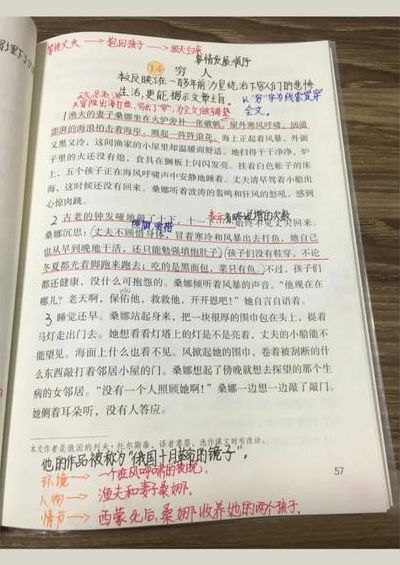 等待丈夫→抱回孩子→渔夫归来
事情发展顺序
14 穷人
本文反映了在一百多年前
生活,更能揭示文章主旨。
以"穷"字为线索贯穿
全文。
1渔夫的妻子桑娜坐在火炉旁补一张破帆。屋外寒风呼啸,汹涌
澎湃的海浪拍击着海岸,溅起一阵阵浪花。海上正起着风暴,外面
又黑又冷,这间渔家的小屋里却温暖而舒适。地扫得干干净净,炉
子里的火还没有熄,食具在搁板上闪闪发亮。挂着白色帐子的床
上,五个孩子正在海风呼啸声中安静地睡着。丈夫清早驾着小船出
海,这时候还没有回来。桑娜听着波涛的轰鸣和狂风的怒吼,感到
心惊肉跳。
2 古老的钟发哑地敲了十下,十一 始终不见丈夫回来。
桑娜沉思:丈夫不顾惜身体,冒着寒冷和风暴出去打鱼,她自己
也从早到晚地干活,还只能勉强填饱肚子。孩子们没有鞋穿,不论
冬夏都光着脚跑来跑去;吃的是黑面包,菜只有鱼。不过,孩子们
都还健康,没什么可抱怨的。桑娜倾听着风暴的声音。"他现在在
哪儿?老天啊,保佑他,救救他,开开恩吧!"她自言自语着。
3 睡觉还早。桑娜站起身来,把一块很厚的围巾包在头上,提着
马灯走出门去。她想看看灯塔上的灯是不是亮着,丈夫的小船能不
能望见。海面上什么也看不见。风掀起她的围巾,卷着被刮断的什
么东西敲打着邻居小屋的门。桑娜想起了傍晚就想去探望的那个生
病的女邻居。"没有一个人照顾她啊!"桑娜一边想一边敲了敲门。
她侧着耳朵听,没有人答应。
本文作者是俄国的列夫·托尔斯泰,译者草婴,选作课文时有改动。
他的作品被称为"俄国十月革命的镜子"。
57
环境→一个在风呼啸的夜晚,
人物→渔夫和妻子桑娜。
情节→西蒙死后,桑娜收养她的两个孩子。